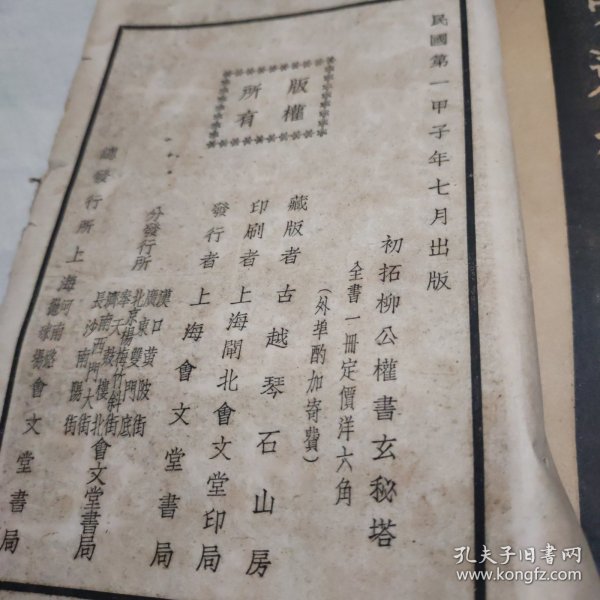 民國第一甲子年七月出版
版權
所有
初拓柳公權書玄秘塔
全書一冊定價洋六角
(外埠酌加寄費)
藏版者古越琴石山房
印刷者上海閘北會文堂印局
發行者上海會文堂書局
分發行所
漢口黃陂街
廣東雙門底
北京楊梅竹斜街
奉天鼓樓北
濟南西門大街
長沙南陽街
會文堂書局
總發行所上海河南路拋球場會文堂書局
孔夫子旧书网
www.kongfz.com